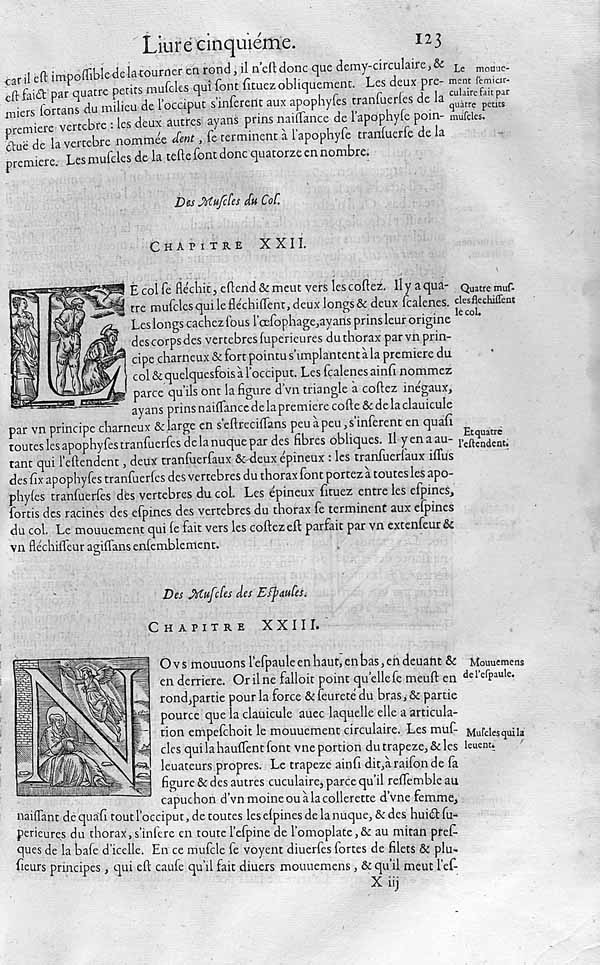 Liure cinquiéme. 123
car il eſt impoſſible de la tourner en rond, il n'eſt donc que demy-circulaire, &
eſt faict par quatre petits muſcles qui ſont ſituez obliquement. Les deux pre-
miers ſortans du milieu de l'occiput s'inſerent aux apophyſes tranſuerſes de la
premiere vertebre: les deux autres ayans prins naiſſance de l'apophyſe poin-
ctuë de la vertebre nommée dent, ſe terminent à l'apophyſe tranſuerſe de la
premiere. Les muſcles de la teſte ſont donc quatorze en nombre.
Le mouue-
ment ſemicir-
culaire fait par
quatre petits
muſcles.
Des Muſcles du Col.
CHAPITRE XXII.
LE col ſe fléchit, eſtend & meut vers les coſtez. Il y a qua-
tre muſcles qui le fléchiſſent, deux longs & deux ſcalenes.
Les longs cachez ſous l'œſophage, ayans prins leur origine
des corps des vertebres ſuperieures du thorax par vn prin-
cipe charneux & fort pointu s'implantent à la premiere du
col & quelquesfois à l'occiput. Les ſcalenes ainſi nommez
parce qu'ils ont la figure d'vn triangle à coſtez inégaux,
ayans prins naiſſance de la premiere coſte & de la clauicule
par vn principe charneux & large en s'eſtreciſſans peu à peu, s'inſerent en quaſi
toutes les apophyſes tranſuerſes de la nuque par des fibres obliques. Il y en a au-
tant qui l'eſtendent, deux tranſuerſaux & deux épineux: les tranſuerſaux iſſus
des ſix apophyſes tranſuerſes des vertebres du thorax ſont portez à toutes les apo-
phyſes tranſuerſes des vertebres du col. Les épineux ſituez entre les eſpines,
ſortis des racines des eſpines des vertebres du thorax ſe terminent aux eſpines
du col. Le mouuement qui ſe fait vers les coſtez eſt parfait par vn extenſeur &
vn fléchiſſeur agiſſans enſemblement.
Quatre muſ-
cles flechiſſent
le col.
Et quatre
l'eſtendent.
Des Muſcles des Eſpaules.
CHAPITRE XXIII.
NOvs mouuons l'eſpaule en haut, en bas, en deuant &
en derriere. Or il ne falloit point qu'elle ſe meuſt en
rond, partie pour la force & ſeureté du bras, & partie
pource que la clauicule auec laquelle elle a articula-
tion empeſchoit le mouuement circulaire. Les muſ-
cles qui la hauſſent ſont vne portion du trapeze, & les
leuateurs propres. Le trapeze ainſi dit, à raiſon de ſa
figure & des autres cuculaire, parce qu'il reſſemble au
capuchon d'vn moine ou à la collerette d'vne femme,
naiſſant de quaſi tout l'occiput, de toutes les eſpines de la nuque, & des huict ſu-
perieures du thorax, s'inſere en toute l'eſpine de l'omoplate, & au mitan preſ-
ques de la baſe d'icelle. En ce muſcle ſe voyent diuerſes ſortes de filets & plu-
ſieurs principes, qui eſt cauſe qu'il fait diuers mouuemens, & qu'il meut l'eſ-
Mouuemens
de l'eſpaule.
Muſcles qui la
leuent.
X iij